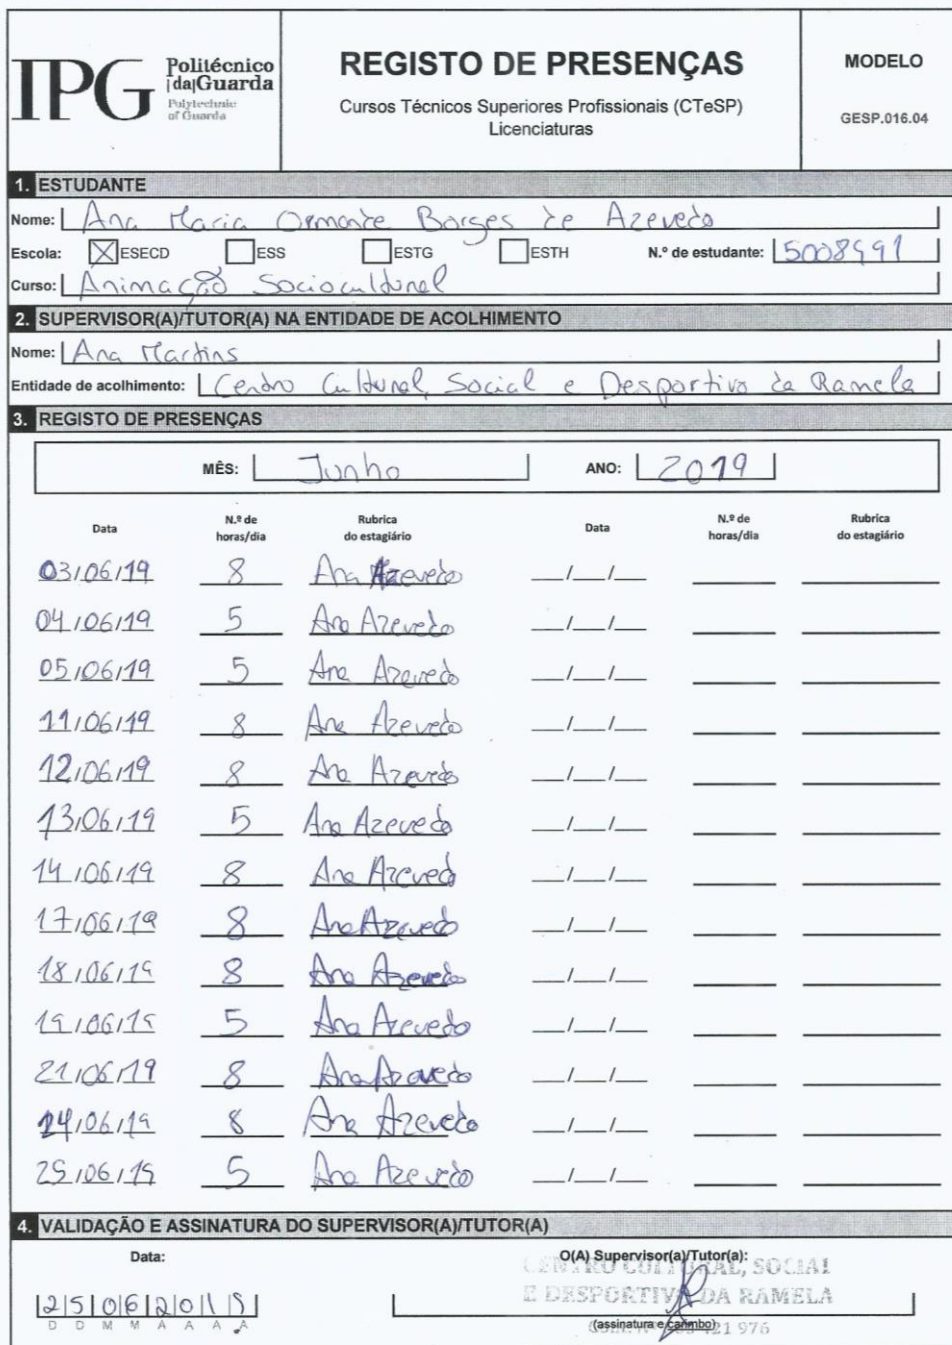 IPG Politécnico |da|Guarda Polytechnic of Guarda
REGISTO DE PRESENÇAS
Cursos Técnicos Superiores Profissionais (CTeSP)
Licenciaturas
MODELO
GESP.016.04
1. ESTUDANTE
Nome: Ana Maria Ormonde Borges de Azevedo
Escola: X ESECD ESS ESTG ESTH N.º de estudante:
Curso: Animação Sociocultural
2. SUPERVISOR(A)/TUTOR(A) NA ENTIDADE DE ACOLHIMENTO
Nome: Ana Martins
Entidade de acolhimento: Centro Cultural, Social e Desportivo da Ramela
3. REGISTO DE PRESENÇAS
MÊS: Junho ANO: 2019
Data N.º de horas/dia Rubrica do estagiário Data N.º de horas/dia Rubrica do estagiário
03/06/19 8 Ana Azevedo __/__/__
04/06/19 5 Ana Azevedo __/__/__
05/06/19 5 Ana Azevedo __/__/__
11/06/19 8 Ana Azevedo __/__/__
12/06/19 8 Ana Azevedo __/__/__
13/06/19 5 Ana Azevedo __/__/__
14/06/19 8 Ana Azevedo __/__/__
17/06/19 8 Ana Azevedo __/__/__
18/06/19 8 Ana Azevedo __/__/__
19/06/19 5 Ana Azevedo __/__/__
21/06/19 8 Ana Azevedo __/__/__
24/06/19 8 Ana Azevedo __/__/__
25/06/19 5 Ana Azevedo __/__/__
4. VALIDAÇÃO E ASSINATURA DO SUPERVISOR(A)/TUTOR(A)
Data: O(A) Supervisor(a)/Tutor(a):
CENTRO CULTURAL, SOCIAL
E DESPORTIVO DA RAMELA
25062019
D D M M A A A A
(assinatura e carimbo) 421 976